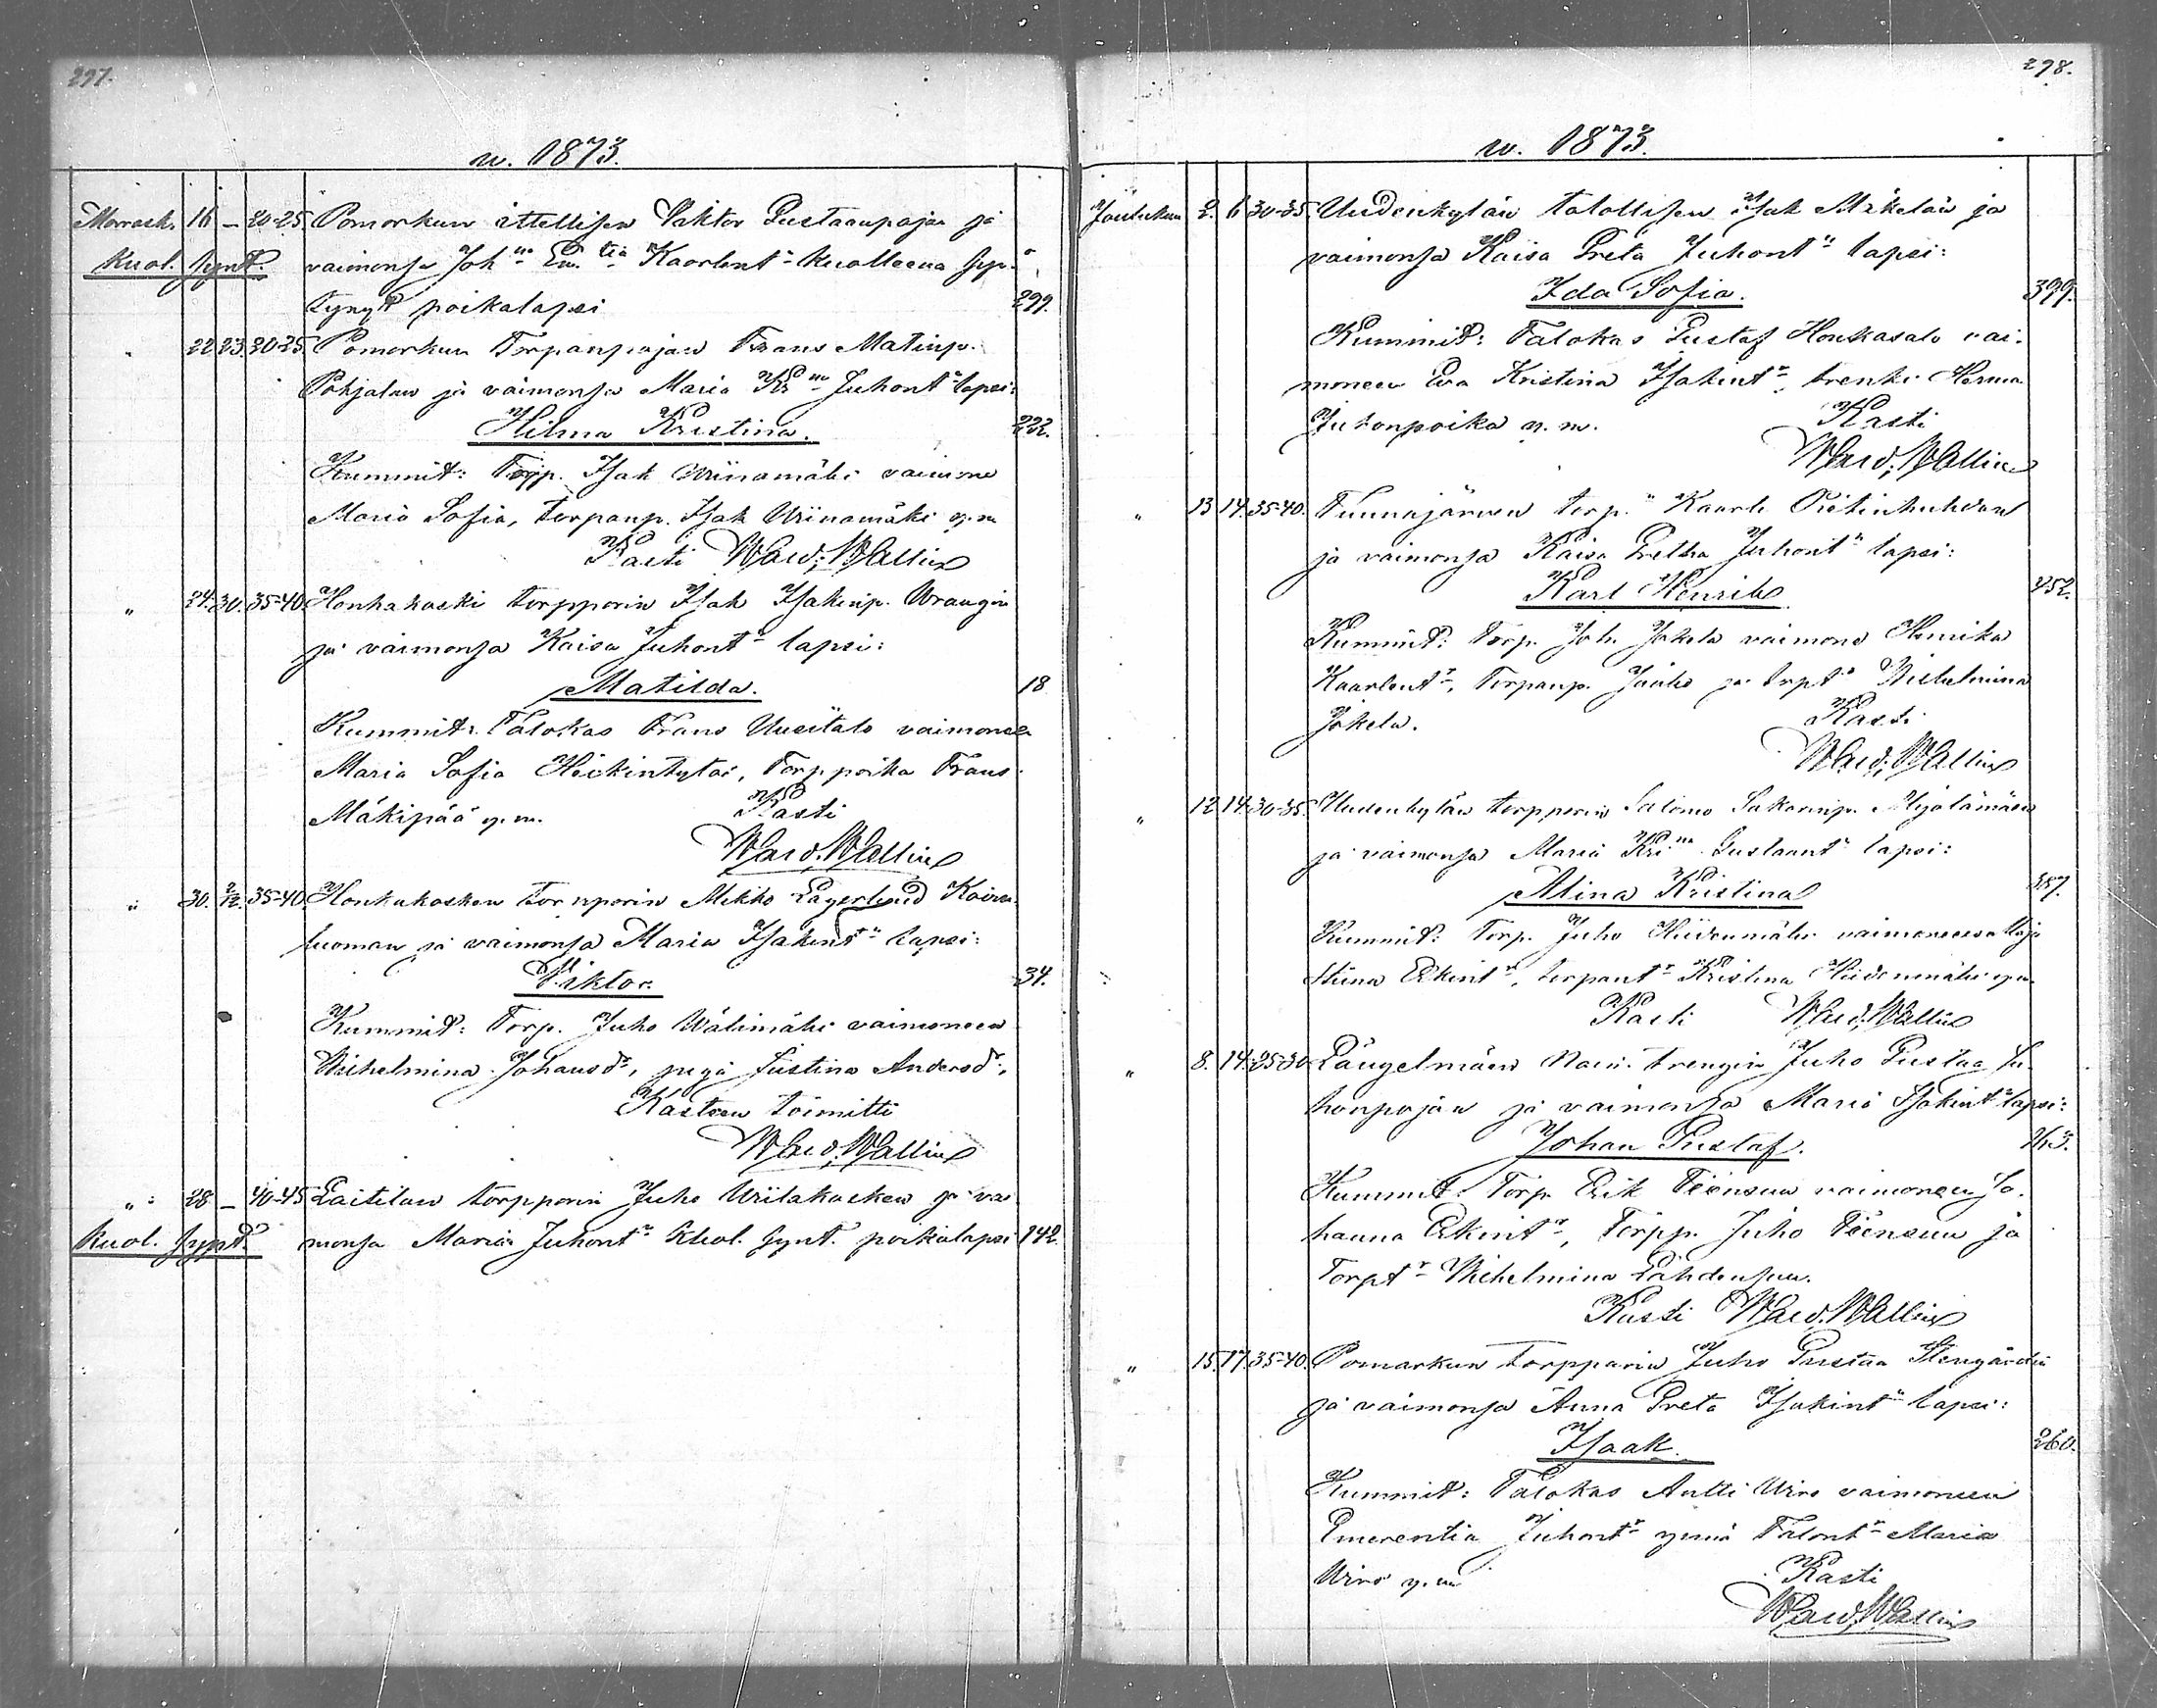 297.
w. 1873.
Marrask. 16 – 20-25 Pomarkun ittellisen Viktor Kustaanpojan ja
Kuol. synt. vaimonsa Joh:na Em:tia Kaarlent:r kuolleena syn-
tynyt poikalapsi 299.
" 22. 23. 20-25. Pomarkun Torpanpojan Frans Matinp.
Pohjalan ja vaimonsa Maria Kr:na Juhont:r lapsi:
Hilma Kristina. 222.
Kummit: Torp. Isak Wiinamäki vaimone
Maria Sofia, torpanp. Isak Wiinamäki y.m
Kasti Wald. Wallin
" 24. 30. 35-40 Honkakoski torpparin Isak Isakinp. Wrangin
ja vaimonsa Kaisa Juhont:r lapsi:
Matilda. 18
Kummit: Talokas Frans Uusitalo vaimoneen
Maria Sofia Heickintytär, Torppoika Frans
Mäkipää y.m. Kasti
Wald. Wallin
" 30. 2/12. 35-40. Honkakosken torpparin Mikko Lagerlund Koivu-
luoman ja vaimonsa Maria Isakint:r lapsi:
Viktor. 34.
Kummit: Torp. Juho Wälimäki vaimoneen
Wilhelmina Johansd:r, piga Justina Andersd:r,
Kasteen toimitti
Wald. Wallin
" 28 – 40-45 Laitilan torpparin Juho Wiilakosken ja vai
Kuol. synt. monsa Maria Juhont:r Kuol. synt. poikalapsi 142.
298.
w. 1873.
Joulukuu 2. 6 30-35. Uudenkylän talollisen Isak Mäkelän ja
vaimonsa Kaisa Greta Juhont:r lapsi:
Ida Sofia. 399.
Kummit: Talokas Gustaf Honkasalo vai-
moneen Eva Kristina Isakint:r, trenki Herma
Juhonpoika y.m. Kasti
Wald. Wallin
" 13 14. 35-40. Tuunajärven torp. Kaarle Pietinhuhdan
ja vaimonsa Kaisa Gretha Juhont:r lapsi:
Karl Henrik 452.
Kummit: Torp. Joh. Jokela vaimone Henrika
Kaarlent:r, Torpanp. Juuho ja trpt:r Wilhelmina
Jokela. Kasti
Wald. Wallin
" 12 14. 30-35. Uudenkylän torpparin Salomo Sakarinp. Myölämäen
ja vaimonsa Maria Kri:na Gustaant:r lapsi:
Alina Kristina 387.
Kummit: Torp. Juho Hiidenmäki vaimoneen Maja
Stiina Erkint:r, torpant:r Kristina Hiidenmäki y.m.
Kasti Wald. Wallin
" 8. 14. 25-30 Längelmäen Nain. trengin Juho Kustaa Ju-
honpojan ja vaimonsa Maria Isakint:r lapsi:
Johan Gustaf. 163.
Kummit: Torp. Erik Teinsuu vaimoneen Jo-
hanna Erkint:r, Torpp. Juho Teinsuu ja
Torpt:r Wilhelmina Lahdensuu.
Kasti Wald. Wallin
" 15. 17. 35-40. Pomarkun Torpparin Juho Kustaa Stengårdin
ja vaimonsa Anna Greta Isakint:r lapsi:
Isaak. 260.
Kummit: Talokas Antti Wiro vaimoneen
Emerentia Juhont:r ynnä Talont:r Maria
Wiro y.m Kasti
Wald. Wallin